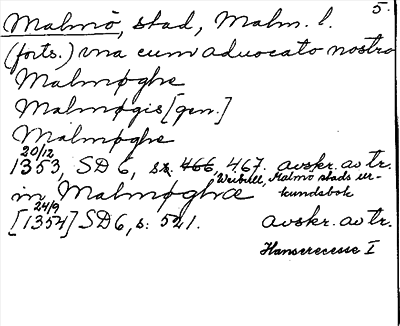 Malmö, stad, Malm. l. 5.
(forts.) una cum advocato nostro
Malmøghe
Malmøgis [gen.]
Malmøghe
20/12
1353, SD 6, s. 466 467. avskr. av tr.
Weibull, Malmö stads ur-
kundsbok
in Malmøghæ
24/9
[1354] SD 6, s. 521. avskr. av tr.
Hanserecesse I